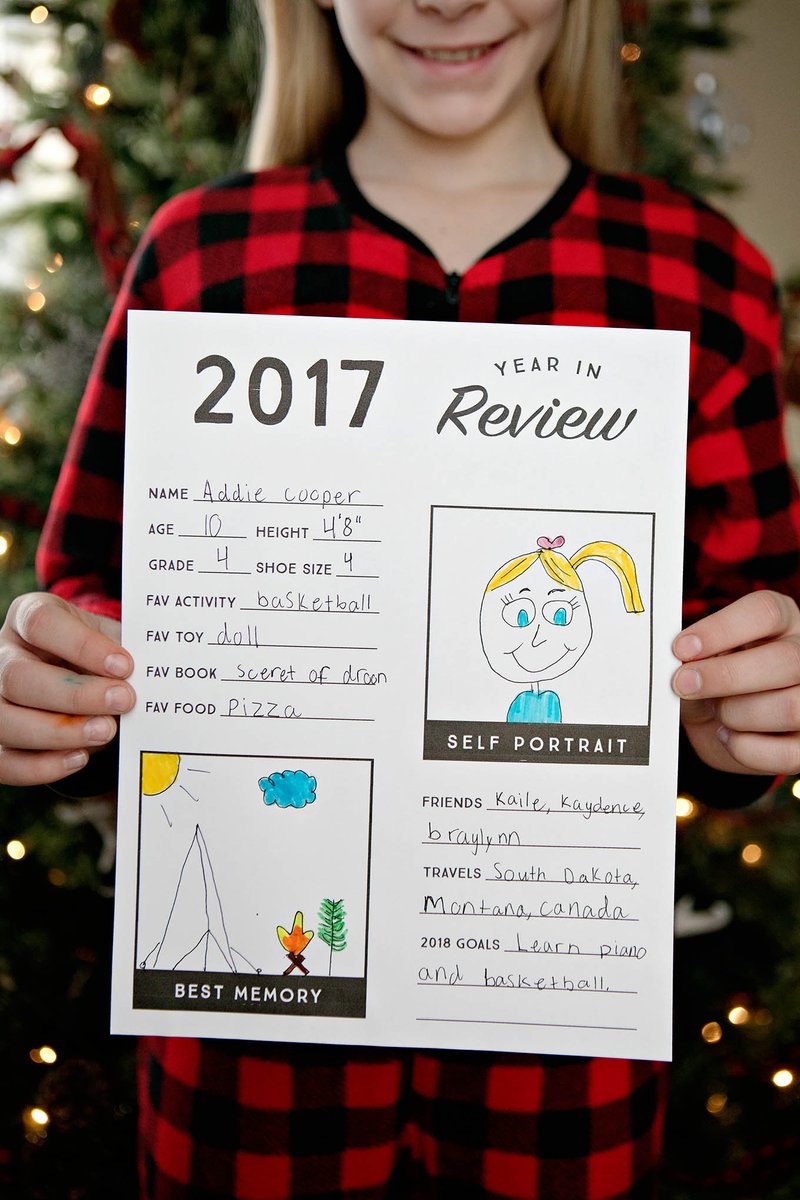 2017
YEAR IN
Review
NAME Addie cooper
AGE 10 HEIGHT 4'8"
GRADE 4 SHOE SIZE 4
FAV ACTIVITY basketball
FAV TOY doll
FAV BOOK sceret of droon
FAV FOOD pizza
BEST MEMORY
SELF PORTRAIT
FRIENDS Kaile, Kaydence,
braylynn
TRAVELS South Dakota,
Montana, canada
2018 GOALS Learn piano
and basketball.